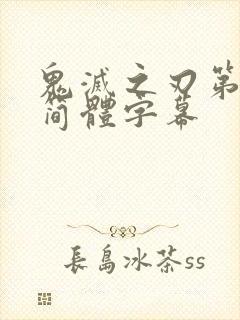 鬼滅之刃第
简體字幕
長島冰茶ss